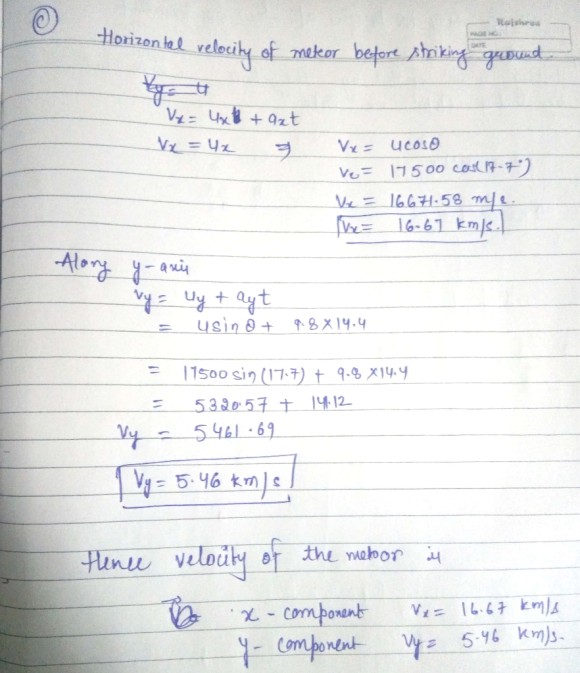 (C)
Rajshree
PAGE NO.
DATE
Horizontal velocity of meteor before striking ground.
Vy = u
Vx = ux + axt
Vx = ux ⇒ Vx = ucosθ
Vx = 17500 cos(17.7°)
Vx = 16671.58 m/s.
Vx = 16.67 km/s.
Along y-axis
Vy = uy + ayt
= usinθ + 9.8×14.4
= 17500 sin(17.7) + 9.8×14.4
= 5320.57 + 141.12
Vy = 5461.69
Vy = 5.46 km/s
Hence velocity of the meteor is
x-component Vx = 16.67 km/s
y-component Vy = 5.46 km/s.